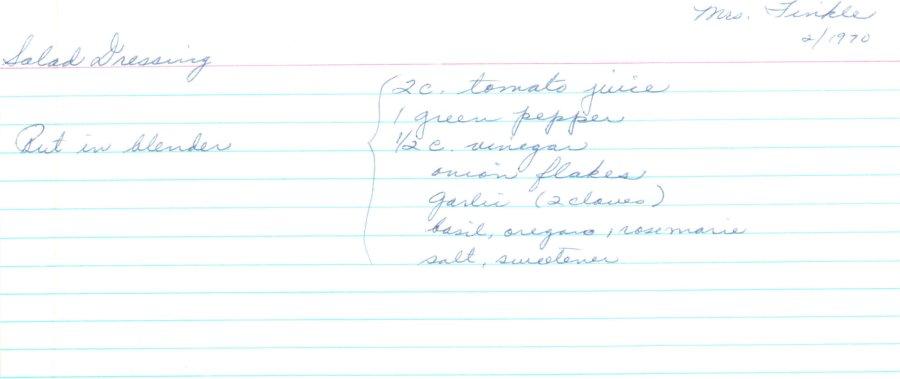 Mrs. Finkle
2/1970
Salad Dressing
Put in blender
2 c. tomato juice
1 green pepper
1/2 c. vinegar
onion flakes
garlic (2 cloves)
basil, oregano, rosemarie
salt, sweetener